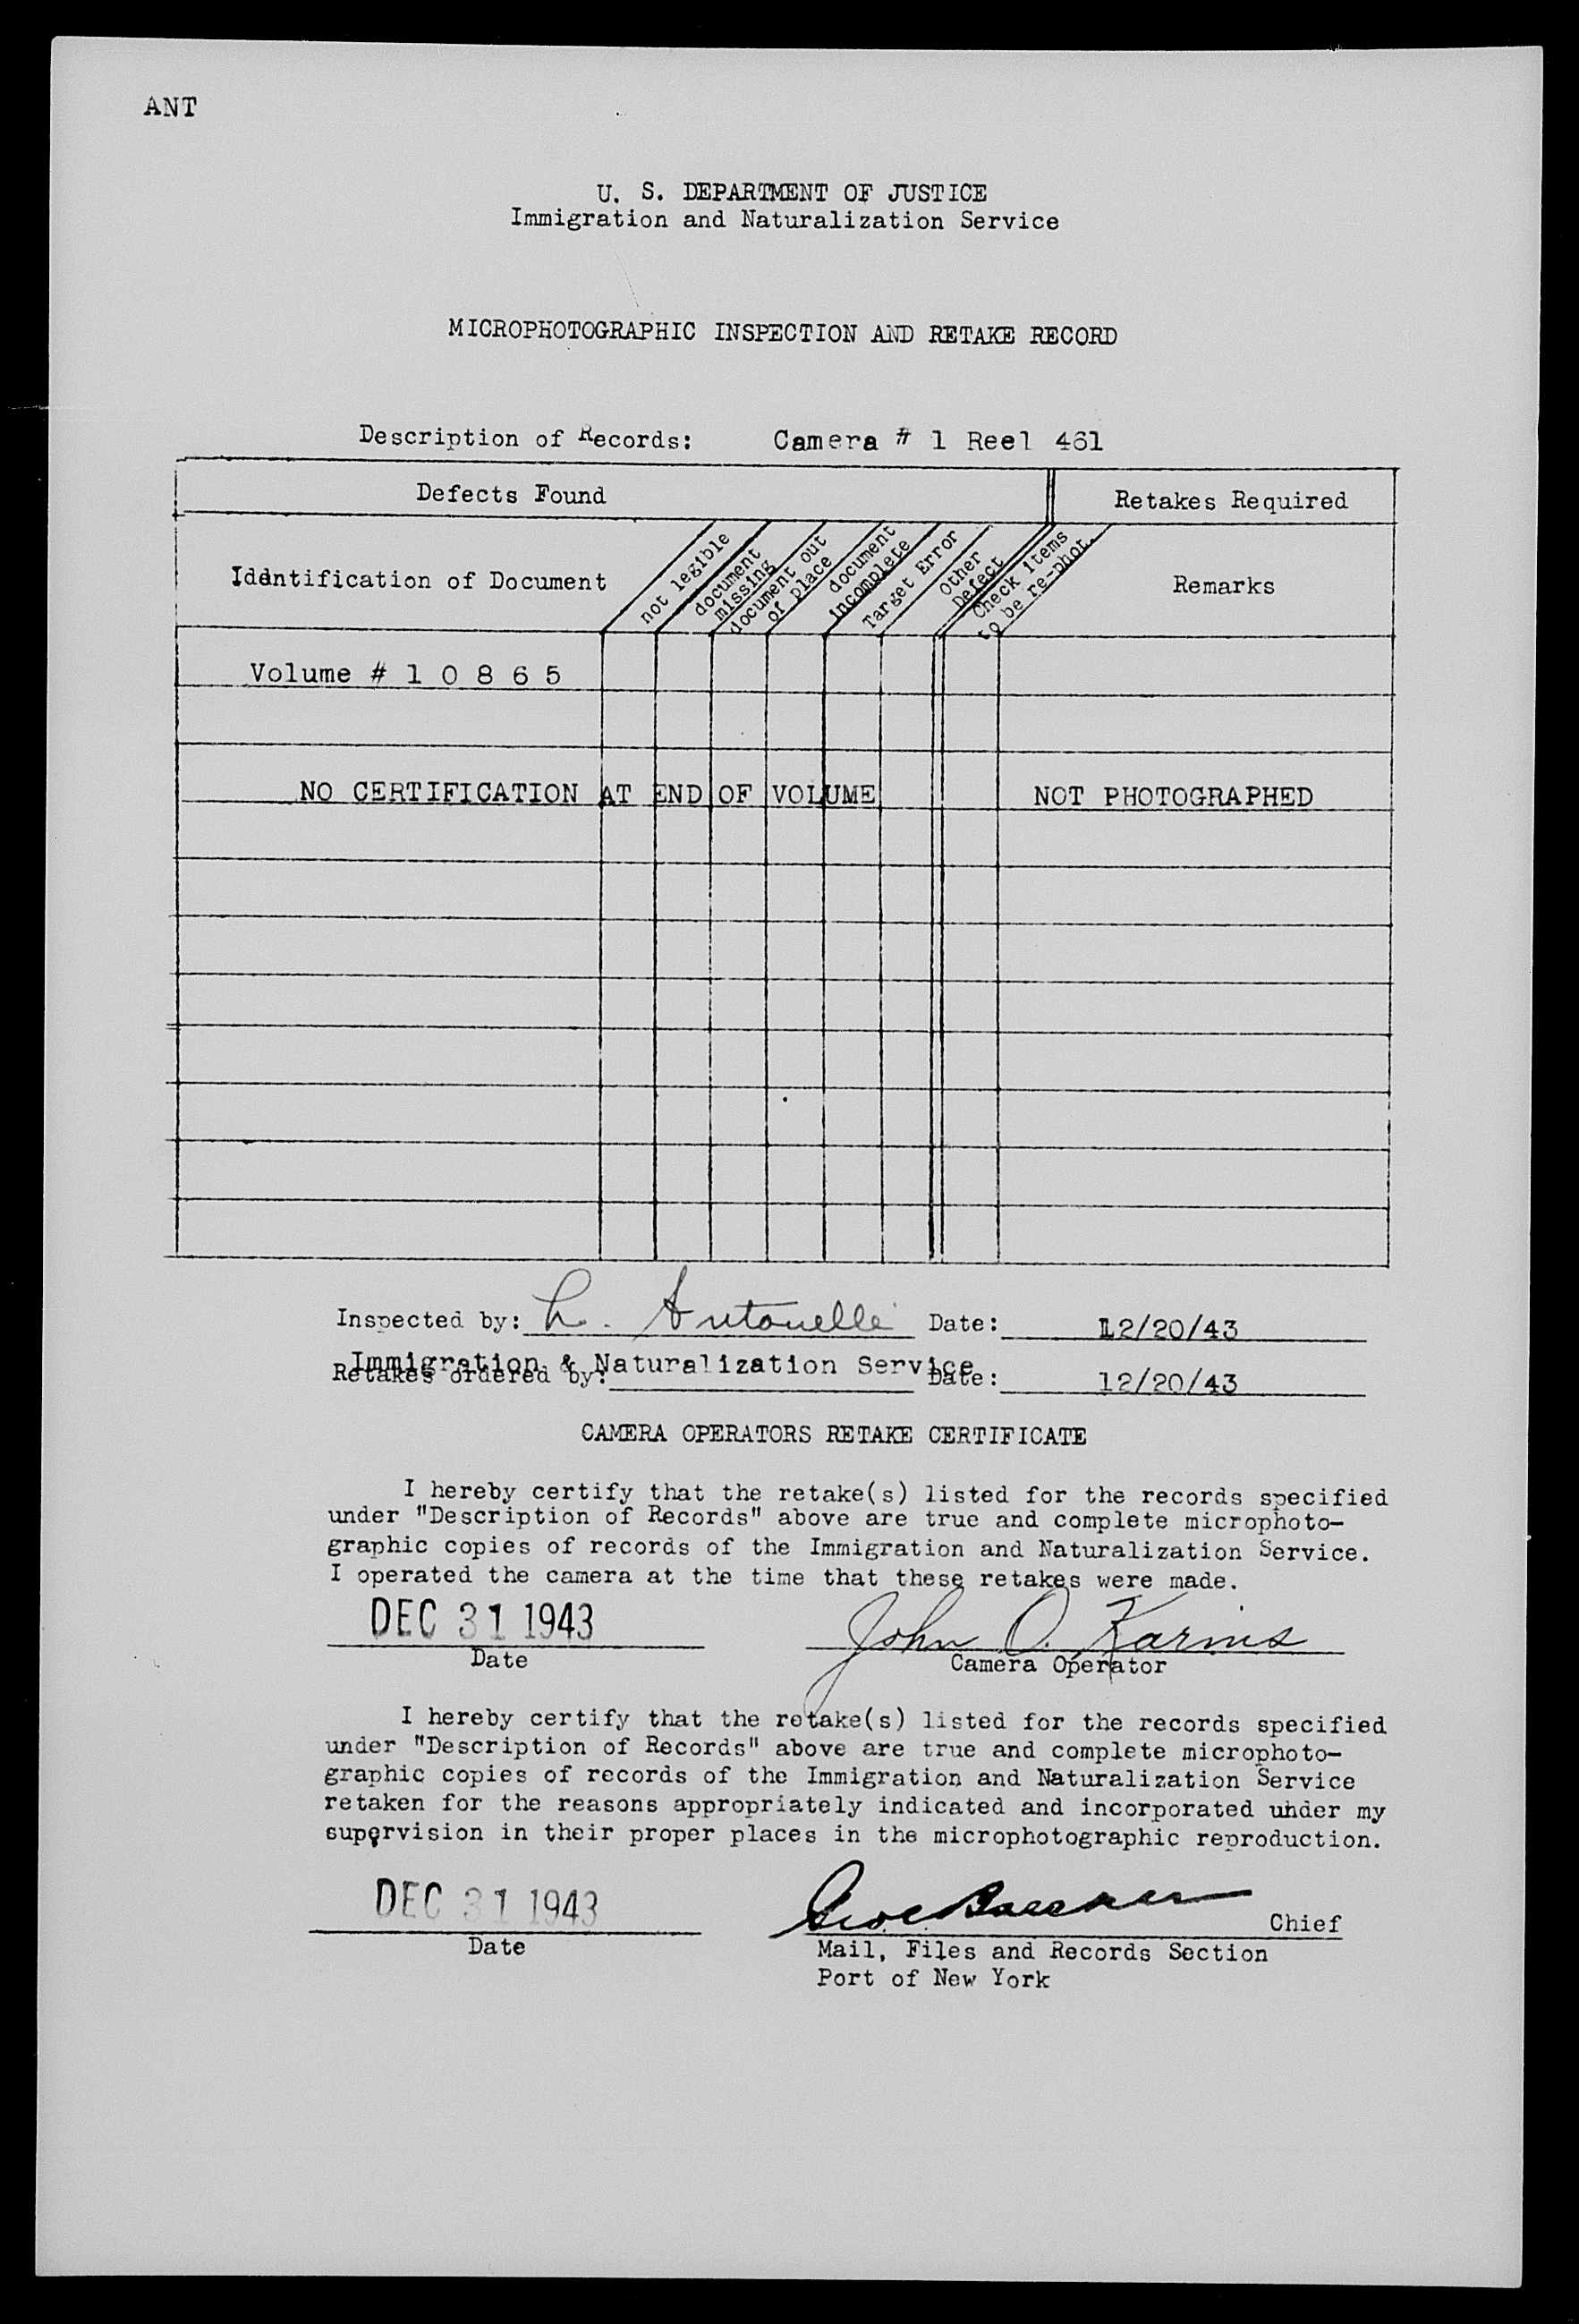 ANT
U. S. DEPARTMENT OF JUSTICE
Immigration and Naturalization Service
MICROPHOTOGRAPHIC INSPECTION AND RETAKE RECORD
Description of Records: Camera # 1 Reel 461
Defects Found
Retakes Required
Identification of Document
not legible
document
missing
document out
of place
document
incomplete
Target Error
Other
Defect
Check items
to be re-phot.
Remarks
Volume # 1 0 8 6 5
NO CERTIFICATION AT END OF VOLUME NOT PHOTOGRAPHED
Inspected by: L. Antonelli Date: 12/20/43
Immigration & Naturalization Service
Retakes ordered by: Date: 12/20/43
CAMERA OPERATORS RETAKE CERTIFICATE
I hereby certify that the retake(s) listed for the records specified
under "Description of Records" above are true and complete microphoto-
graphic copies of records of the Immigration and Naturalization Service.
I operated the camera at the time that these retakes were made.
DEC 31 1943 John O. Karins
Date Camera Operator
I hereby certify that the retake(s) listed for the records specified
under "Description of Records" above are true and complete microphoto-
graphic copies of records of the Immigration and Naturalization Service
retaken for the reasons appropriately indicated and incorporated under my
supervision in their proper places in the microphotographic reproduction.
DEC 31 1943 Chief
Date Mail, Files and Records Section
Port of New York